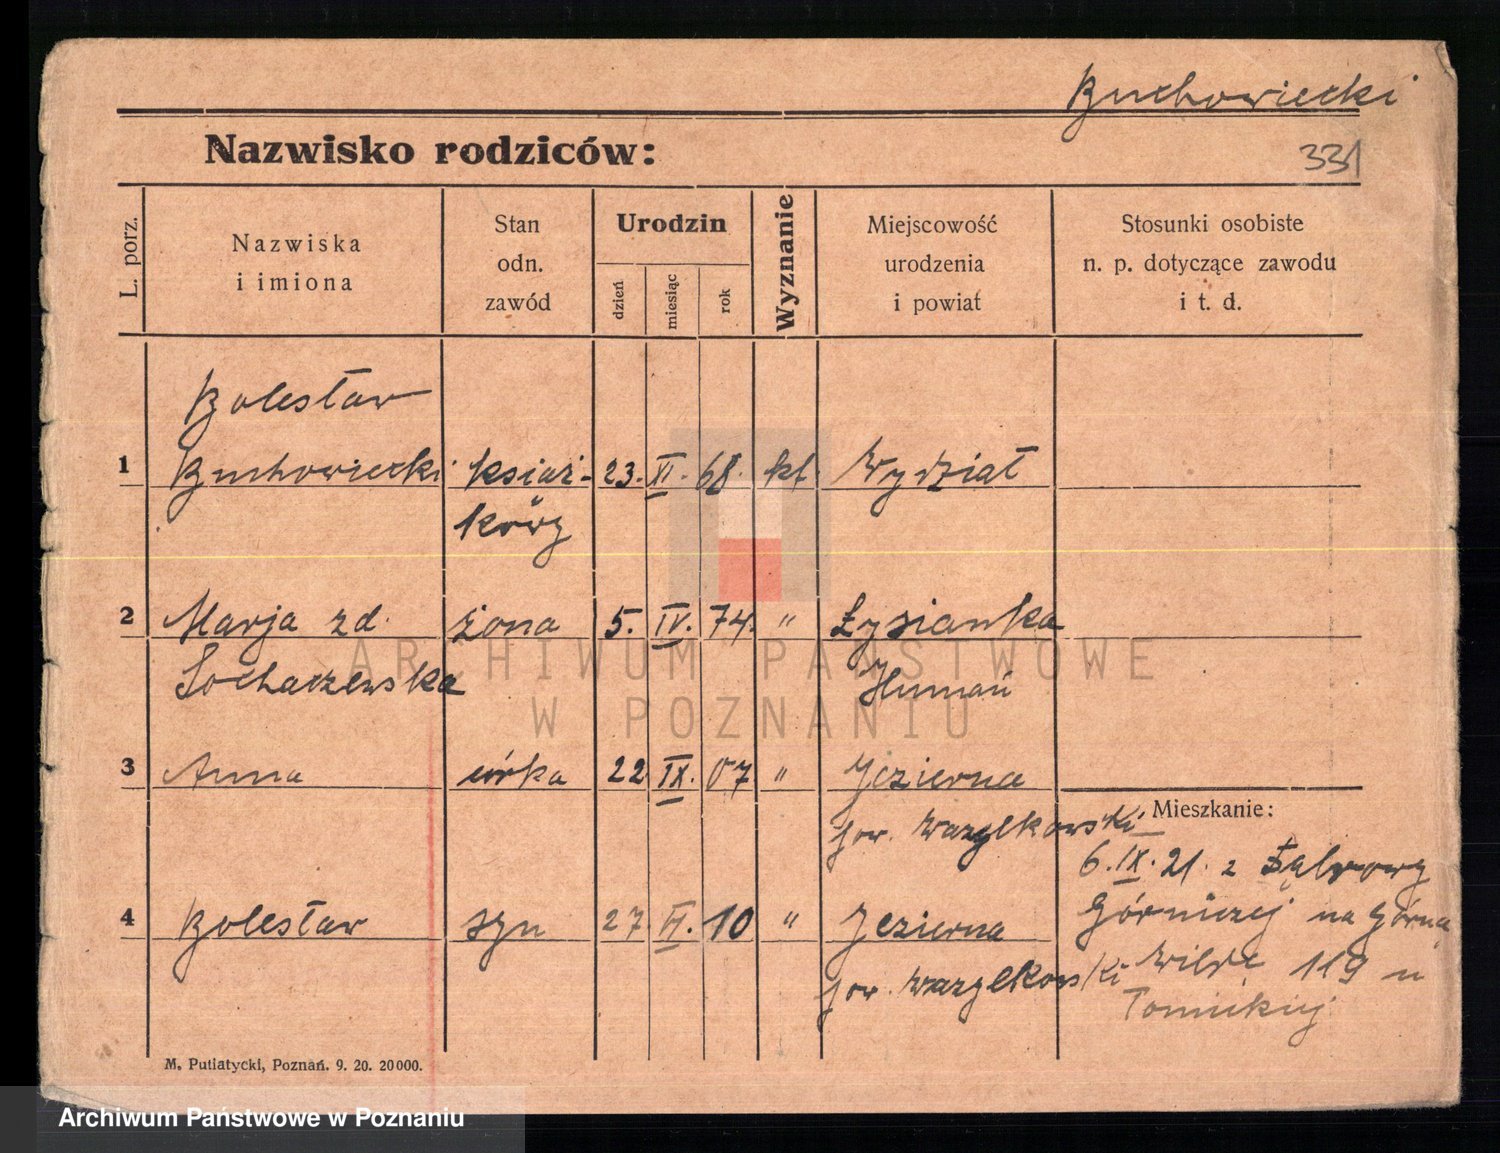 Buchowiecki
331
Nazwisko rodziców:
L. porz.
Nazwiska
i imiona
Stan
odn.
zawód
Urodzin
dzień
miesiąc
rok
Wyznanie
Miejscowość
urodzenia
i powiat
Stosunki osobiste
n. p. dotyczące zawodu
i t. d.
Bolesław
1 Buchowiecki książ- 23. XI. 68. kt. Wydział
kowy
2 Marja zd. żona 5. IV. 74. " Łysianka
Sochaczewska Humań
3 Anna córka 22 IX. 07 " Jezierna
pow. Wasylkowski
Mieszkanie:
6. IX. 21. z Dąbrowy
4 Bolesław syn 27. VI. 10 " Jezierna
Górniczej na Górną
pow. Wasylkowski
Wildę 119 u
Tomickiej
M. Putiatycki, Poznań. 9. 20. 20000.
ARCHIWUM PAŃSTWOWE
W POZNANIU
Archiwum Państwowe w Poznaniu